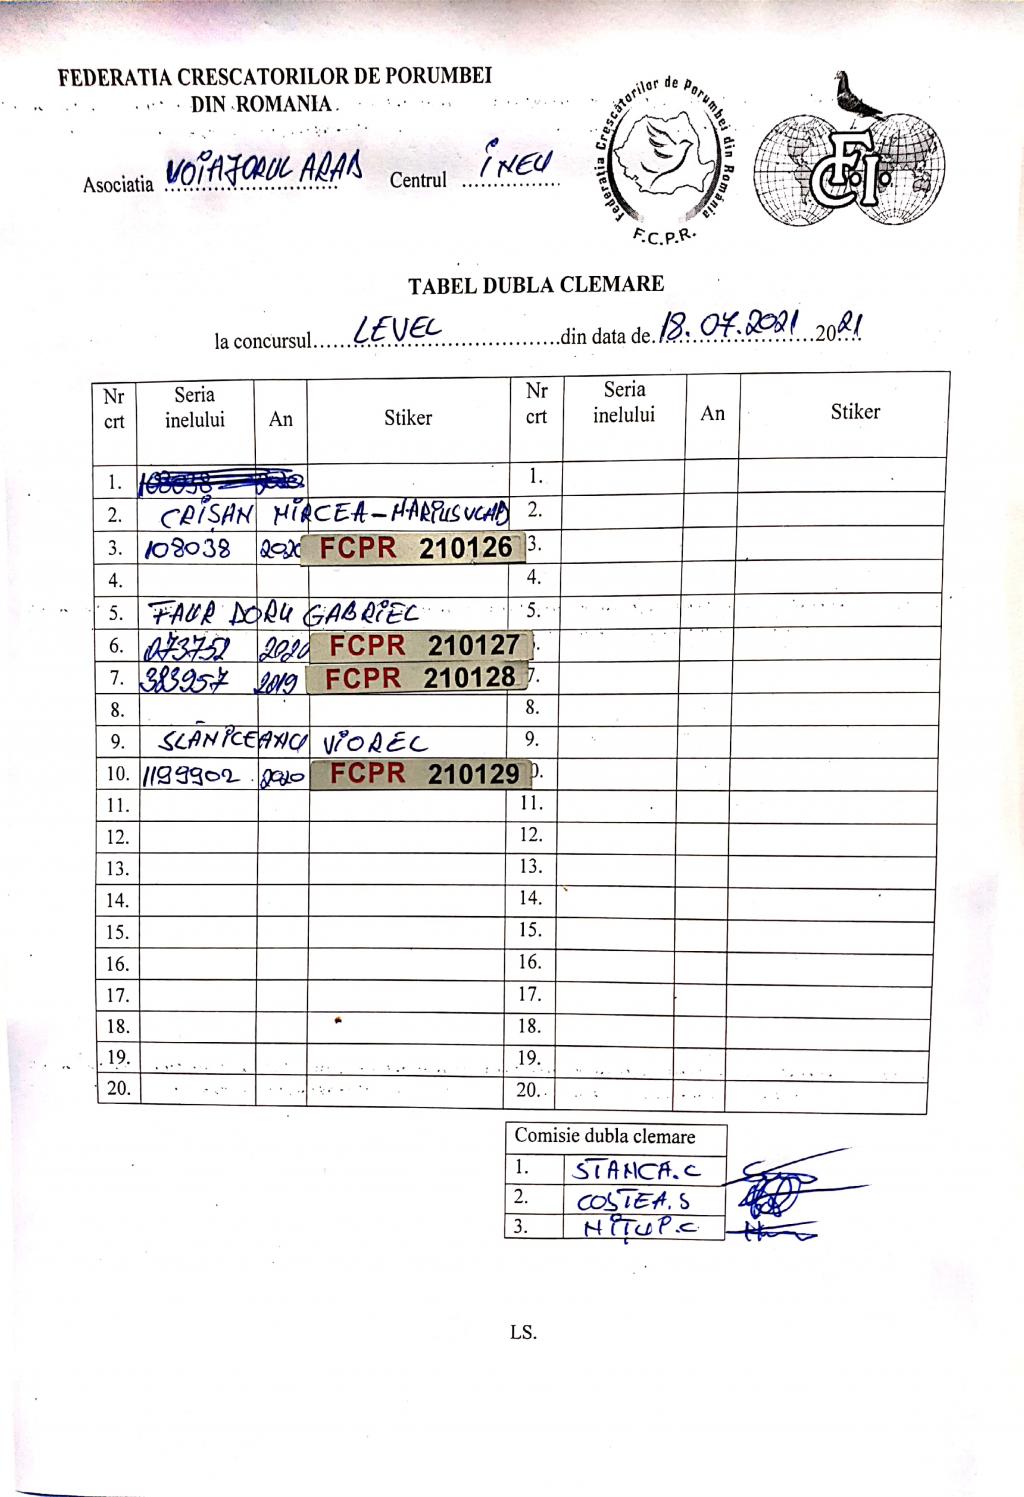 FEDERATIA CRESCATORILOR DE PORUMBEI
DIN ROMANIA
Asociatia VOIAJORUL ARAD Centrul INEU
Federatia Crescătorilor de Porumbei din România
F.C.P.R.
F.C.I.
TABEL DUBLA CLEMARE
la concursul......LEVEL..................din data de.18.07.2021....2021
Nr crt Seria inelului An Stiker Nr crt Seria inelului An Stiker
1. 108038 1.
2. CRIȘAN MIRCEA-MARIUS VLAD 2.
3. 108038 2020 FCPR 210126 3.
4. 4.
5. FAUR DORU GABRIEL 5.
6. 073752 2020 FCPR 210127
7. 383957 2019 FCPR 210128 7.
8. 8.
9. SLĂNICEANU VIOREL 9.
10. 1199902 2020 FCPR 210129 0.
11. 11.
12. 12.
13. 13.
14. 14.
15. 15.
16. 16.
17. 17.
18. 18.
19. 19.
20. 20.
Comisie dubla clemare
1. STANCA.C
2. COSTEA.S
3. NIȚU P.C
LS.